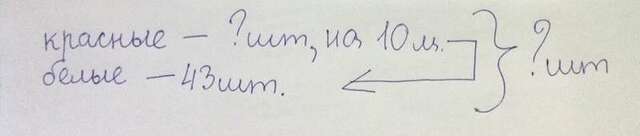 красные – ?шт, на 10м. ?шт
белые – 43шт.